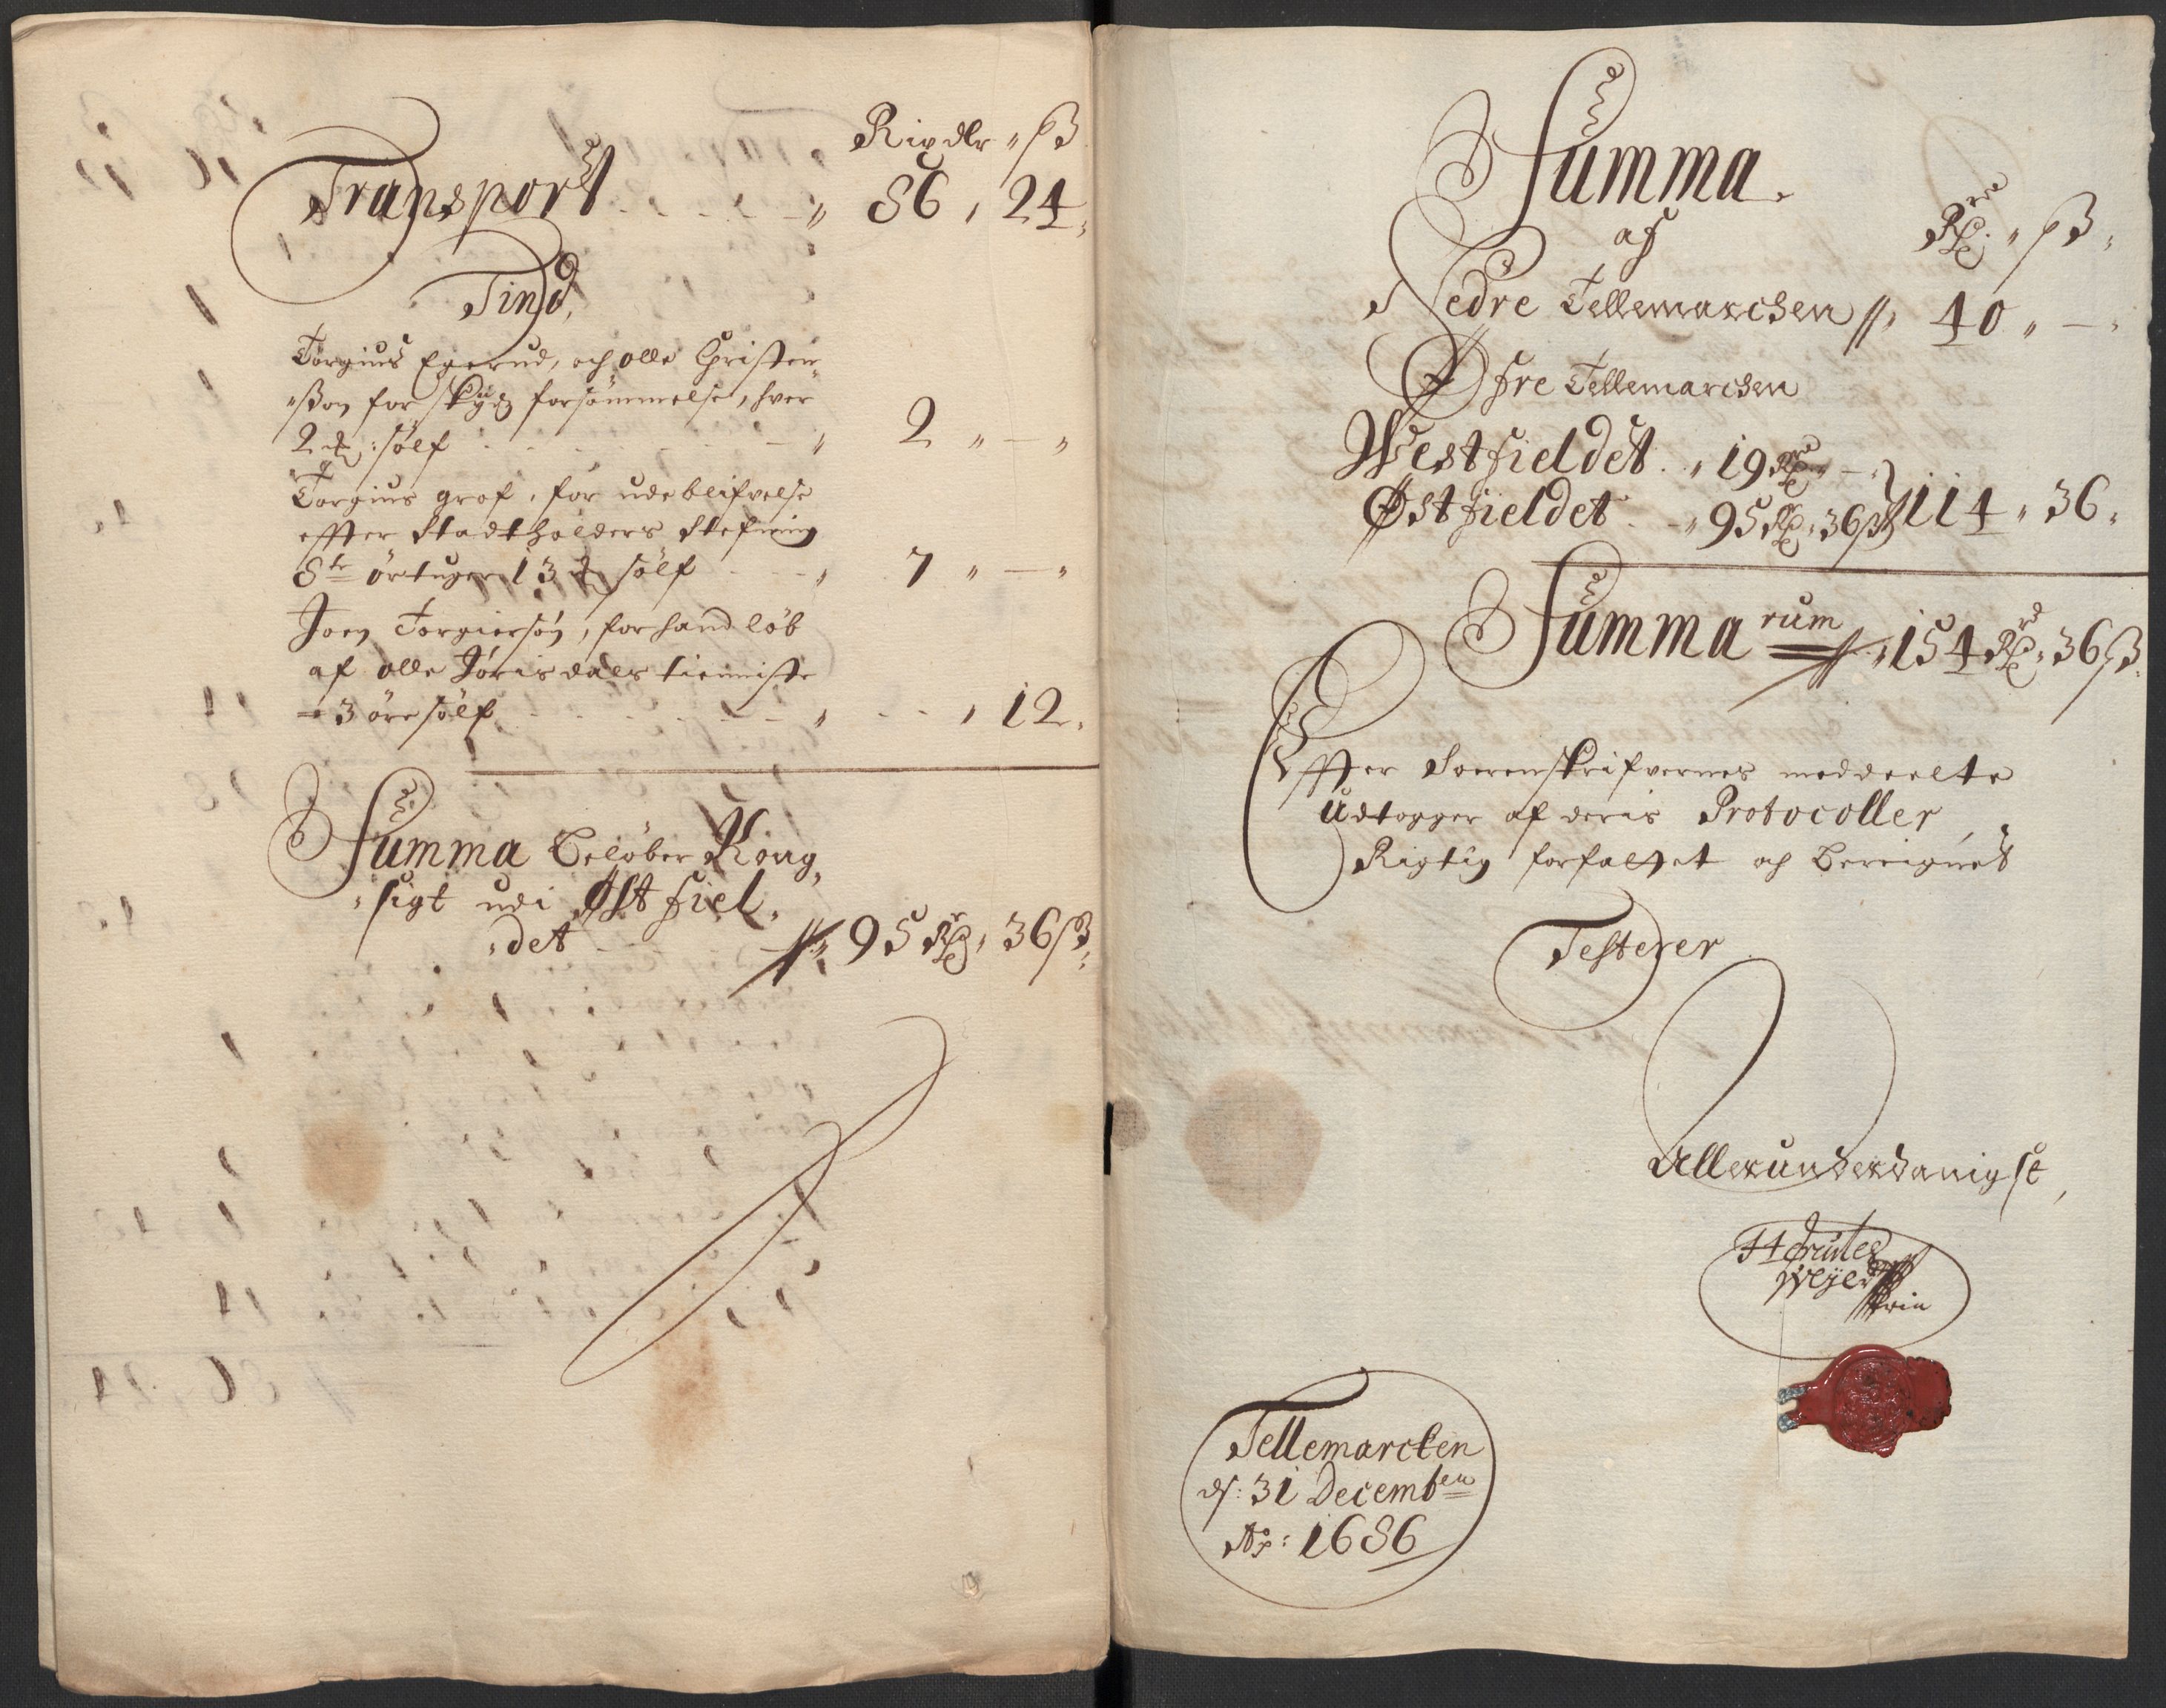 Rixdlr " ß
Transport - - - - " 86 , 24 ,
Tind,
Torgius Egerud, och olle Christen
"ßøn for skyds forsømmelse, hver
2 : sølf - - - - - - " 2 " — "
Torgius graf, for udeblifvelse
effter Stadtholders Stefning
8te ørtuger 13 sølf - - " 7 " — "
Joen Torgiersøn, for handløb
af olle Jørisdals tienniste
- 3 øre sølf - - - - - - " - - , 12 ,
Summa Beløber Kong,
, sigt udi Østfiel,
, det - - - 95 Rd , 36 ß,
Summa
af
Rdr " ß ,
Nedre Tellemarchen // 40 " — ,
Øfre Tellemarchen
Westfieldet . " 19 Rdr " — ,
Østfieldet - - " 95 Rd , 36 ß 114 , 36 ,
Summarum 154 Rd , 36 ß.
Effter Soerenskrifvernes meddeelte
Udtogger af deris Protocoller,
Rigtig forfattet och Bereignet
Testerer
Allerunderdanigst,
Weÿer
Tellemarcken
ds: 31 Decembren
Ao: 1686